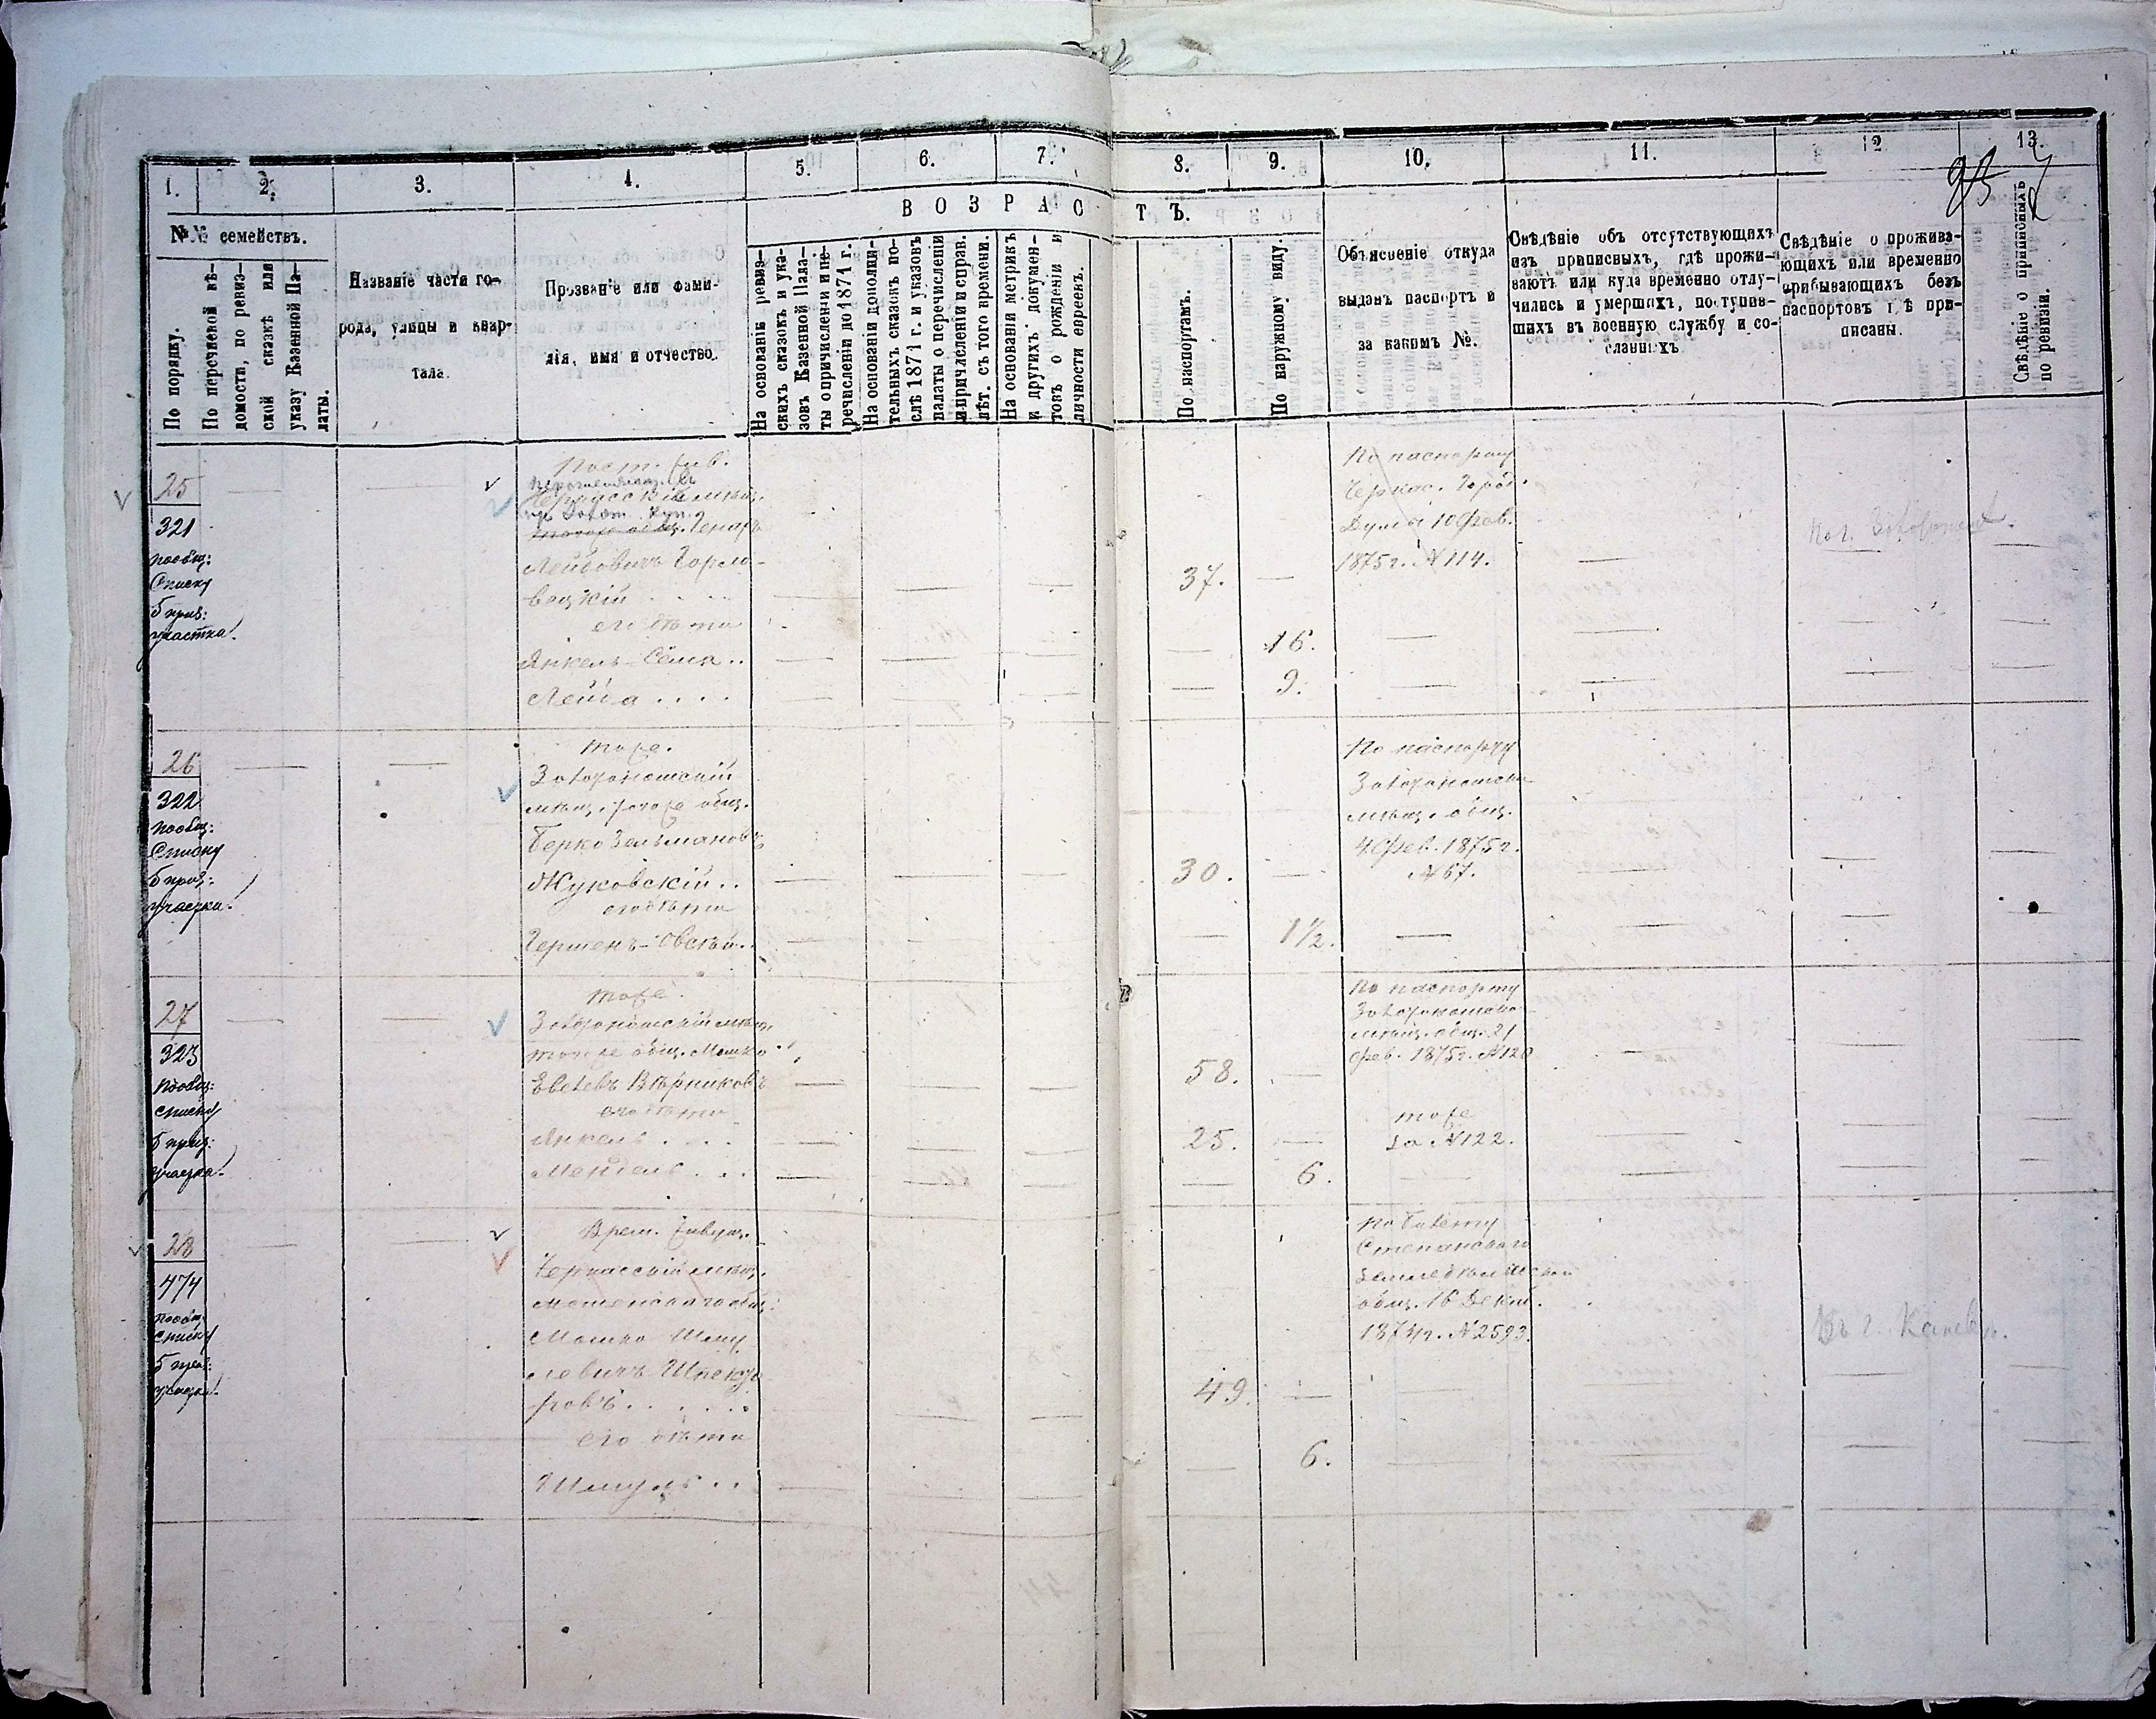 1.
2.
3.
4.
5.
6.
7.
8.
9.
10.
11.
12
13.
95
№№ семействъ.
По порядку.
По перечневой вѣ-
домости, по ревиз-
ской сказкѣ или
указу Казенной Па-
латы.
Названіе части го-
рода, улицы и квар-
тала.
Прозваніе или фами-
лія, имя и отчество.
ВОЗРАСТЪ.
На основаніи ревиз-
скихъ сказокъ и ука-
зовъ Казенной Пала-
ты о причисленіи и пе-
речисленіи до 1871 г.
На основаніи дополни-
тельныхъ сказокъ по-
слѣ 1871 г. и указовъ
палаты о перечисленіи
и причисленіи и справ.
лѣт. съ того времени.
На основаніи метрикъ
и другихъ докумен-
товъ о рожденіи и
личности евреевъ.
По паспортамъ.
По наружному виду.
Объясненіе откуда
выданъ паспортъ и
за какимъ №.
Свѣдѣніе объ отсутствующихъ
изъ приписныхъ, гдѣ прожи-
ваютъ или куда временно отлу-
чились и умершихъ, поступив-
шихъ въ военную службу и со-
сланныхъ
Свѣдѣніе о прожива-
ющихъ или временно
прибывающихъ безъ
паспортовъ гдѣ при-
писаны.
Свѣдѣніе о приписныхъ
по ревизіи.
25
321
пообщ:
Списку
5 приз:
участка.
Пост. жив.
Черкасскій мѣщ.
Лейбовичъ Горло-
вецкій
37.
По паспорту
Черкас. Город.
Думы 10 Фев.
1875 г. № 114.
его дѣти
Янкель-Сёма..
16.
Лейба....
9.
26
322
пообщ:
Списку
5 приз:
участка.
тоже.
Золотоношскій
мѣщ. тогоже общ.
Берко Зельмановъ
Жуковскій..
30.
По паспорту
Золотоношск.
мѣщ. общ.
4 Фев. 1875 г.
№ 67.
его дѣти
Гершенъ-Овсѣй..
1½.
27
323
пообщ:
списку
5 приз:
участка.
тоже.
Золотоношскій мѣщ.
тогоже общ. Мошко
58.
По паспорту
Золотоношск.
мѣщ. общ. 21
фев. 1875 г. № 120
его дѣти
Янкель...
25.
тоже
за № 122.
Мендель...
6.
28
474
пообщ:
списку
5 приз:
участка.
Врем. живущ.
Черкасскій мѣщ.
мошенского общ:
Мошко Шму
левичъ Шпекто
ровъ......
49.
По билету
Степанского
земледѣльческой
общ. 16 Декаб.
1874 г. № 2593.
Въ г. Каневѣ.
его дѣти
Шмуль..
6.